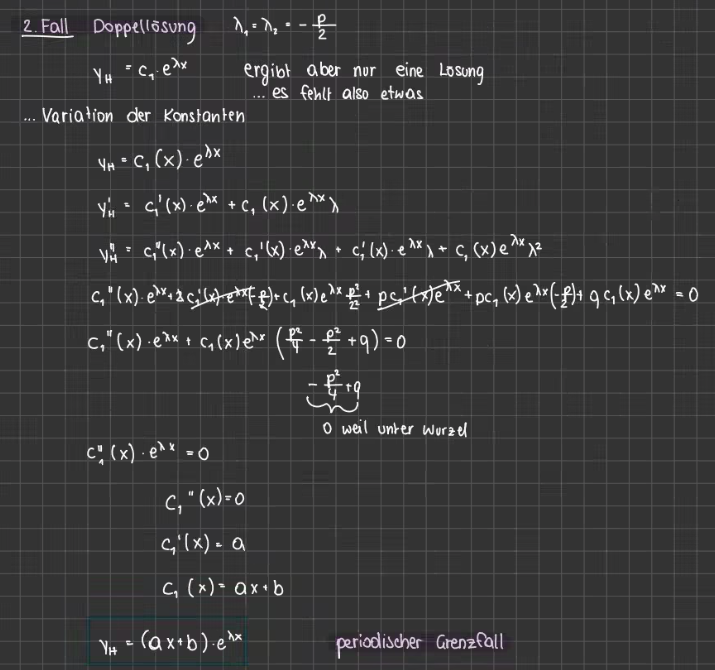 2. Fall Doppellösung λ₁ = λ₂ = - p/2
y_H = c₁ · e^(λx) ergibt aber nur eine Lösung
... es fehlt also etwas
... Variation der Konstanten
y_H = c₁(x) · e^(λx)
y_H' = c₁'(x) · e^(λx) + c₁(x) · e^(λx) λ
y_H'' = c₁''(x) · e^(λx) + c₁'(x) · e^(λx) λ + c₁'(x) · e^(λx) λ + c₁(x) e^(λx) λ²
c₁''(x) · e^(λx) + 2 c₁'(x) · e^(λx) (-p/2) + c₁(x) e^(λx) p²/2² + p c₁'(x) e^(λx) + p c₁(x) e^(λx) (-p/2) + q c₁(x) e^(λx) = 0
c₁''(x) · e^(λx) + c₁(x) e^(λx) (p²/4 - p²/2 + q) = 0
- p²/4 + q
0 weil unter Wurzel
c₁''(x) · e^(λx) = 0
c₁''(x) = 0
c₁'(x) = a
c₁(x) = ax + b
y_H = (ax+b) · e^(λx) periodischer Grenzfall